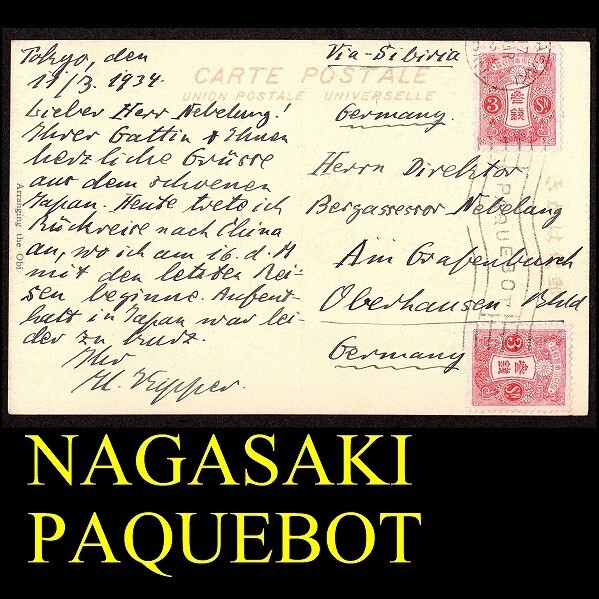 Tokyo, den
11/3. 1934.
Lieber Herr Nebelung!
Ihrer Gattin & Ihnen
herzliche Grüsse
aus dem schoenen
Japan. Heute trete ich
Rückreise nach China
an, wo ich am 16. d. M
mit den letzten Rei-
sen beginne. Aufent-
halt in Japan war lei-
der zu kurz.
Ihr
Arranging the Obi
CARTE POSTALE
UNION POSTALE UNIVERSELLE
Via-Sibiria
Germany.
Herrn Direktor
Bergassessor Nebelung
Am Grafenbusch
Oberhausen Rhld
Germany
3 Sn
参銭
PAQUEBOT
3 Sn
参銭
NAGASAKI
PAQUEBOT